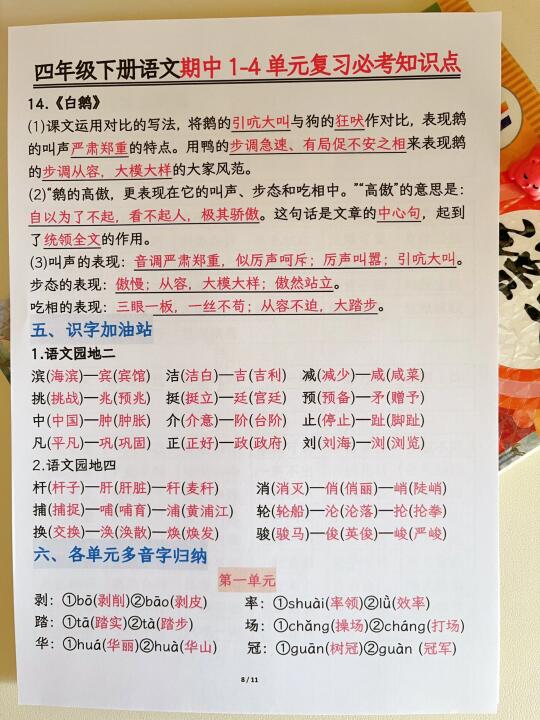 四年级下册语文期中1-4单元复习必考知识点
14.《白鹅》
(1)课文运用对比的写法，将鹅的引吭大叫与狗的狂吠作对比，表现鹅
的叫声严肃郑重的特点。用鸭的步调急速、有局促不安之相来表现鹅
的步调从容，大模大样的大家风范。
(2)“鹅的高傲，更表现在它的叫声、步态和吃相中。”“高傲”的意思是：
自以为了不起，看不起人，极其骄傲。这句话是文章的中心句，起到
了统领全文的作用。
(3)叫声的表现：音调严肃郑重，似厉声呵斥；厉声叫嚣；引吭大叫。
步态的表现：傲慢；从容，大模大样；傲然站立。
吃相的表现：三眼一板，一丝不苟；从容不迫，大踏步。
五、识字加油站
1.语文园地二
滨(海滨)—宾(宾馆) 洁(洁白)—吉(吉利) 减(减少)—咸(咸菜)
挑(挑战)—兆(预兆) 挺(挺立)—廷(宫廷) 预(预备)—矛(赠予)
中(中国)—肿(肿胀) 介(介意)—阶(台阶) 止(停止)—趾(脚趾)
凡(平凡)—巩(巩固) 正(正好)—政(政府) 刘(刘海)—浏(浏览)
2.语文园地四
杆(杆子)—肝(肝脏)—秆(麦秆) 消(消灭)—俏(俏丽)—峭(陡峭)
捕(捕捉)—哺(哺育)—浦(黄浦江) 轮(轮船)—沦(沦落)—抡(抡拳)
换(交换)—涣(涣散)—焕(焕发) 骏(骏马)—俊(英俊)—峻(严峻)
六、各单元多音字归纳
第一单元
剥：①bō(剥削)②bāo(剥皮) 率：①shuài(率领)②lǜ(效率)
踏：①tā(踏实)②tà(踏步) 场：①chǎng(操场)②cháng(打场)
华：①huá(华丽)②huà(华山) 冠：①guān(树冠)②guàn (冠军)
8 / 11